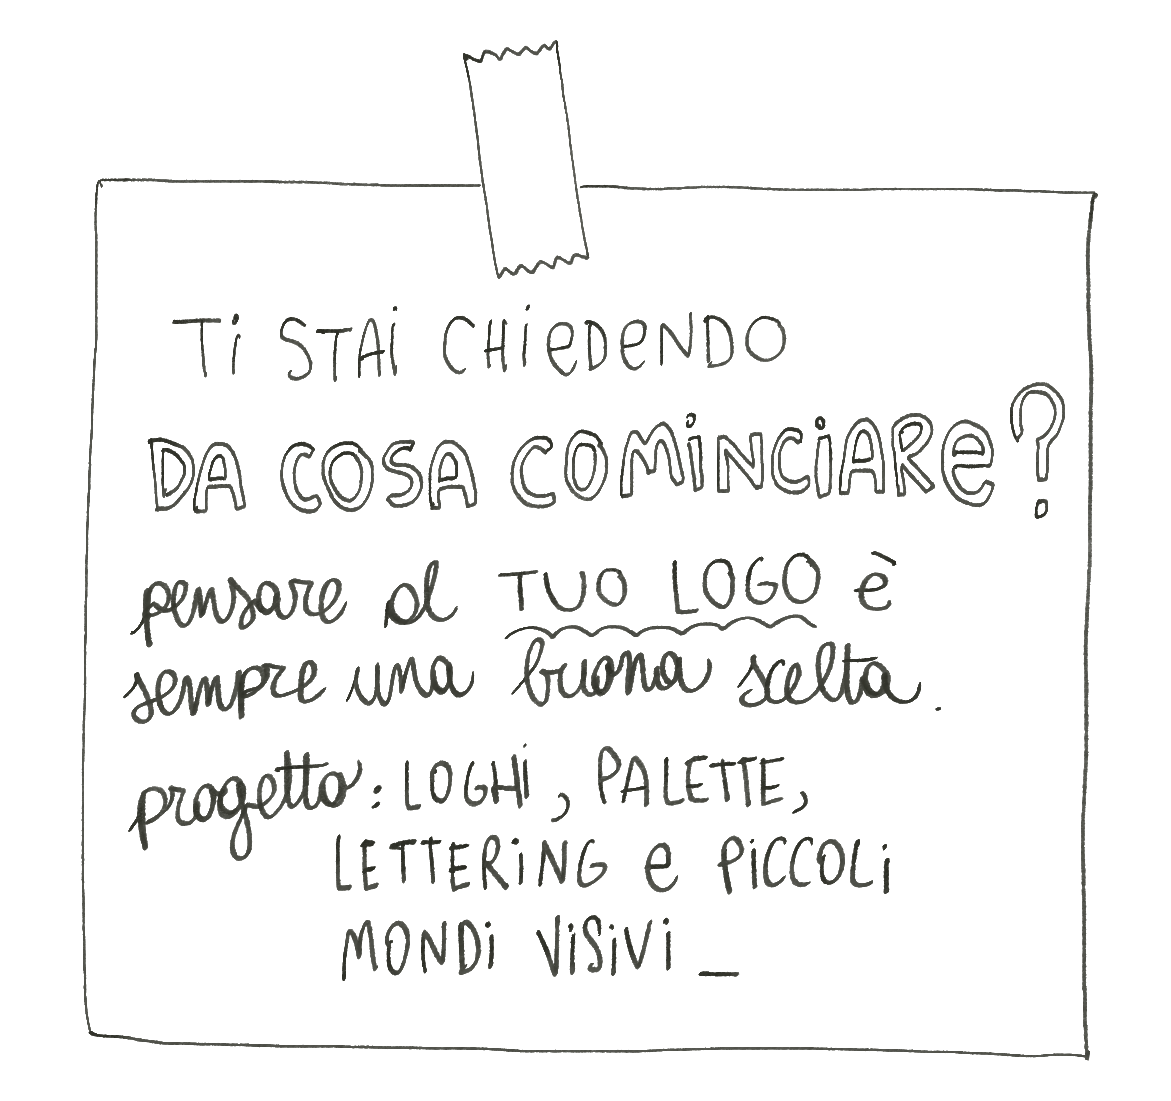 Ti STAi CHieDeNDO
DA COSA COMiNCiARe?
pensare al TUO LOGO è
sempre una buona scelta.
progetto: LOGHi, PALETTE,
LETTERiNG e PiCCOLi
MONDi ViSiVi _